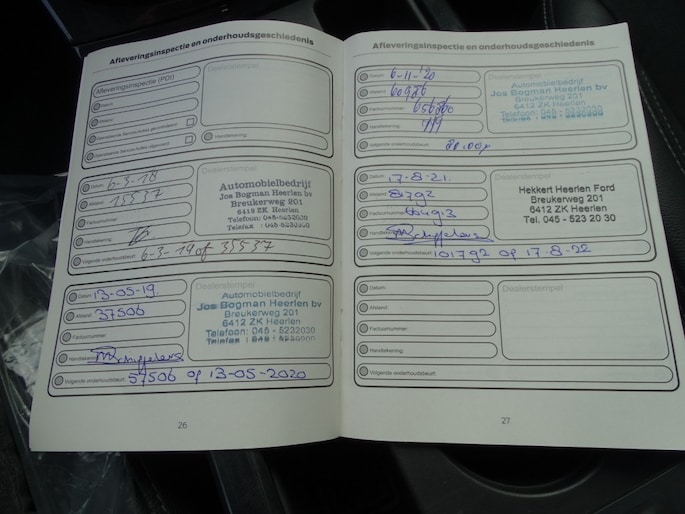 Afleveringsinspectie en onderhoudsgeschiedenis
Afleveringsinspectie (PDI)
Dealerstempel
Datum:
Afstand:
Handtekening:
Datum: 6-3-18
Afstand: 15537
Factuurnummer:
Handtekening:
Volgende onderhoudsbeurt: 6-3-19 of 35537
Dealerstempel
Automobielbedrijf
Jos Bogman Heerlen bv
Breukerweg 201
6412 ZK Heerlen
Telefoon: 045-5232030
Telefax : 045-5230000
Datum: 13-05-19.
Afstand: 37506
Factuurnummer:
Handtekening:
Volgende onderhoudsbeurt: 57506 op 13-05-2020
Dealerstempel
Automobielbedrijf
Jos Bogman Heerlen bv
Breukerweg 201
6412 ZK Heerlen
Telefoon: 045 - 5232030
Telefax : 045 - 5230000
26
Afleveringsinspectie en onderhoudsgeschiedenis
Datum: 6-11-'20
Afstand: 60986
Factuurnummer:
Handtekening:
Volgende onderhoudsbeurt:
Dealerstempel
Automobielbedrijf
Jos Bogman Heerlen bv
Breukerweg 201
6412 ZK Heerlen
Datum: 17-8-21.
Afstand: 81792
Factuurnummer:
Handtekening:
Volgende onderhoudsbeurt: 101792 op 17-8-22
Dealerstempel
Hekkert Heerlen Ford
Breukerweg 201
6412 ZK Heerlen
Tel. 045 - 523 20 30
Datum:
Afstand:
Factuurnummer:
Handtekening:
Volgende onderhoudsbeurt:
Dealerstempel
27